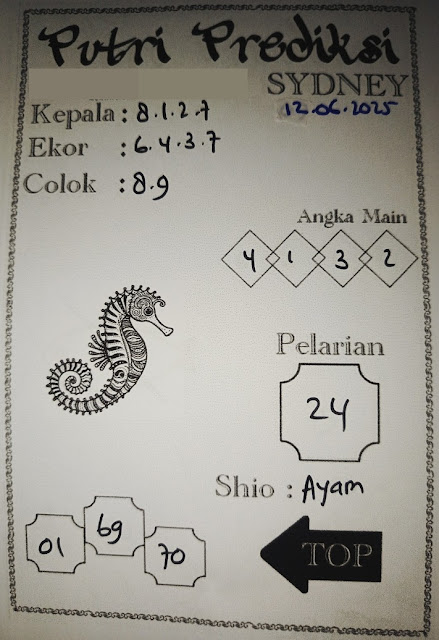 Putri Prediksi
SYDNEY
12.06.2025
Kepala : 8.1.2.7
Ekor : 6.4.3.7
Colok : 8.9
Angka Main
4 1 3 2
Pelarian
24
Shio : Ayam
01 69 70
TOP